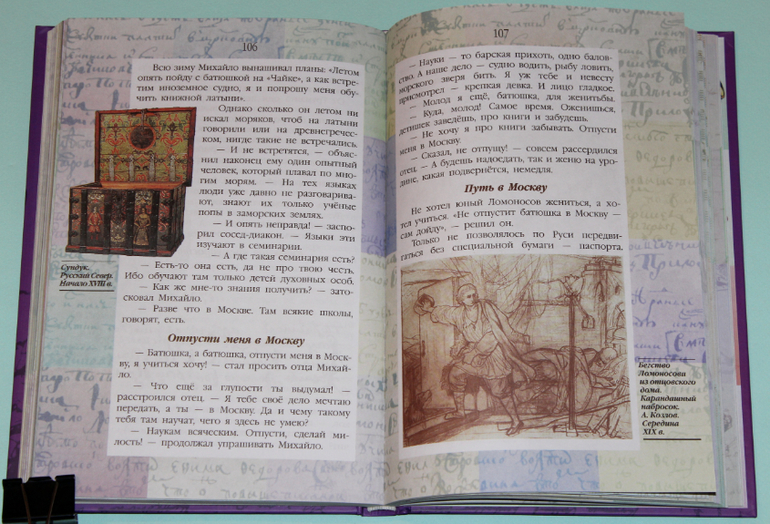 106
Всю зиму Михайло вынашивал планы: «Летом
опять пойду с батюшкой на «Чайке», а как встре-
тим иноземное судно, я и попрошу меня обу-
чить книжной латыни».
Однако сколько он летом ни
искал моряков, чтоб на латыни
говорили или на древнегречес-
ком, нигде такие не встречались.
— И не встретятся, — объяс-
нил наконец ему один опытный
человек, который плавал по мно-
гим морям. — На тех языках
люди уже давно не разговарива-
ют, знают их только учёные
попы в заморских землях.
— И опять неправда! — заспо-
рил сосед-диакон. — Языки эти
изучают в семинарии.
— А где такая семинария есть?
— Есть-то она есть, да не про твою честь.
Ибо обучают там только детей духовных особ.
— Как же мне-то знания получить? — зато-
сковал Михайло.
— Разве что в Москве. Там всякие школы,
говорят, есть.
Сундук.
Русский Север.
Начало XVIII в.
Отпусти меня в Москву
— Батюшка, а батюшка, отпусти меня в Моск-
ву, я учиться хочу! — стал просить отца Михай-
ло.
— Что ещё за глупости ты выдумал! —
расстроился отец. — Я тебе своё дело мечтаю
передать, а ты — в Москву. Да и чему такому
тебя там научат, чего я здесь не умею?
— Наукам всяческим. Отпусти, сделай ми-
лость! — продолжал упрашивать Михайло.
107
— Науки — то барская прихоть, одно балов-
ство. А наше дело — судно водить, рыбу ловить,
морского зверя бить. Я уж тебе и невесту
присмотрел — крепкая девка. И лицо гладкое.
— Молод я ещё, батюшка, для женитьбы.
— Куда, молод! Самое время. Оженишься,
детишек заведёшь, про книги и забудешь.
— Не хочу я про книги забывать. Отпусти
меня в Москву.
— Сказал, не отпущу! — совсем рассердился
отец. — А будешь надоедать, так и женю на уро-
дине, какая подвернётся, немедля.
Путь в Москву
Не хотел юный Ломоносов жениться, а хо-
тел учиться. «Не отпустит батюшка в Москву —
сам дойду», — решил он.
Только не позволялось по Руси передви-
гаться без специальной бумаги — паспорта.
Бегство
Ломоносова
из отцовского
дома.
Карандашный
набросок.
А. Козлов.
Середина
XIX в.